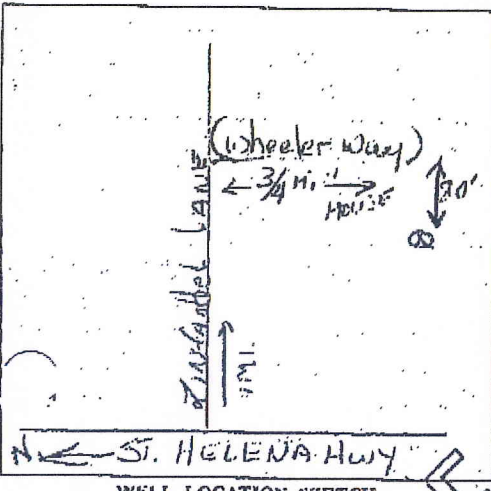 (Wheeler Way)
3/4 Mi.
HOUSE
90'
Zinfandel Lane
1 Mi.
N ST. HELENA HWY
WELL LOCATION SKETCH